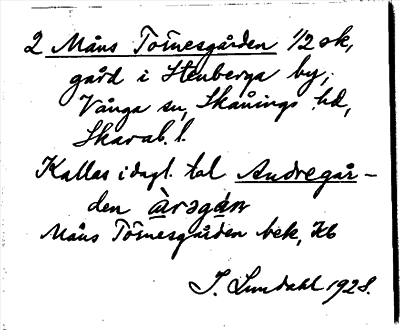 2 Måns Törnesgården 1/2 sk,
gård i Stenberga by,
Vånga sn, Skånings hd,
Skarab. l.
Kallas i dagl. tal Andregår-
den àrəgán
Måns Törnesgården bek, Kb
I. Lundahl 1928.